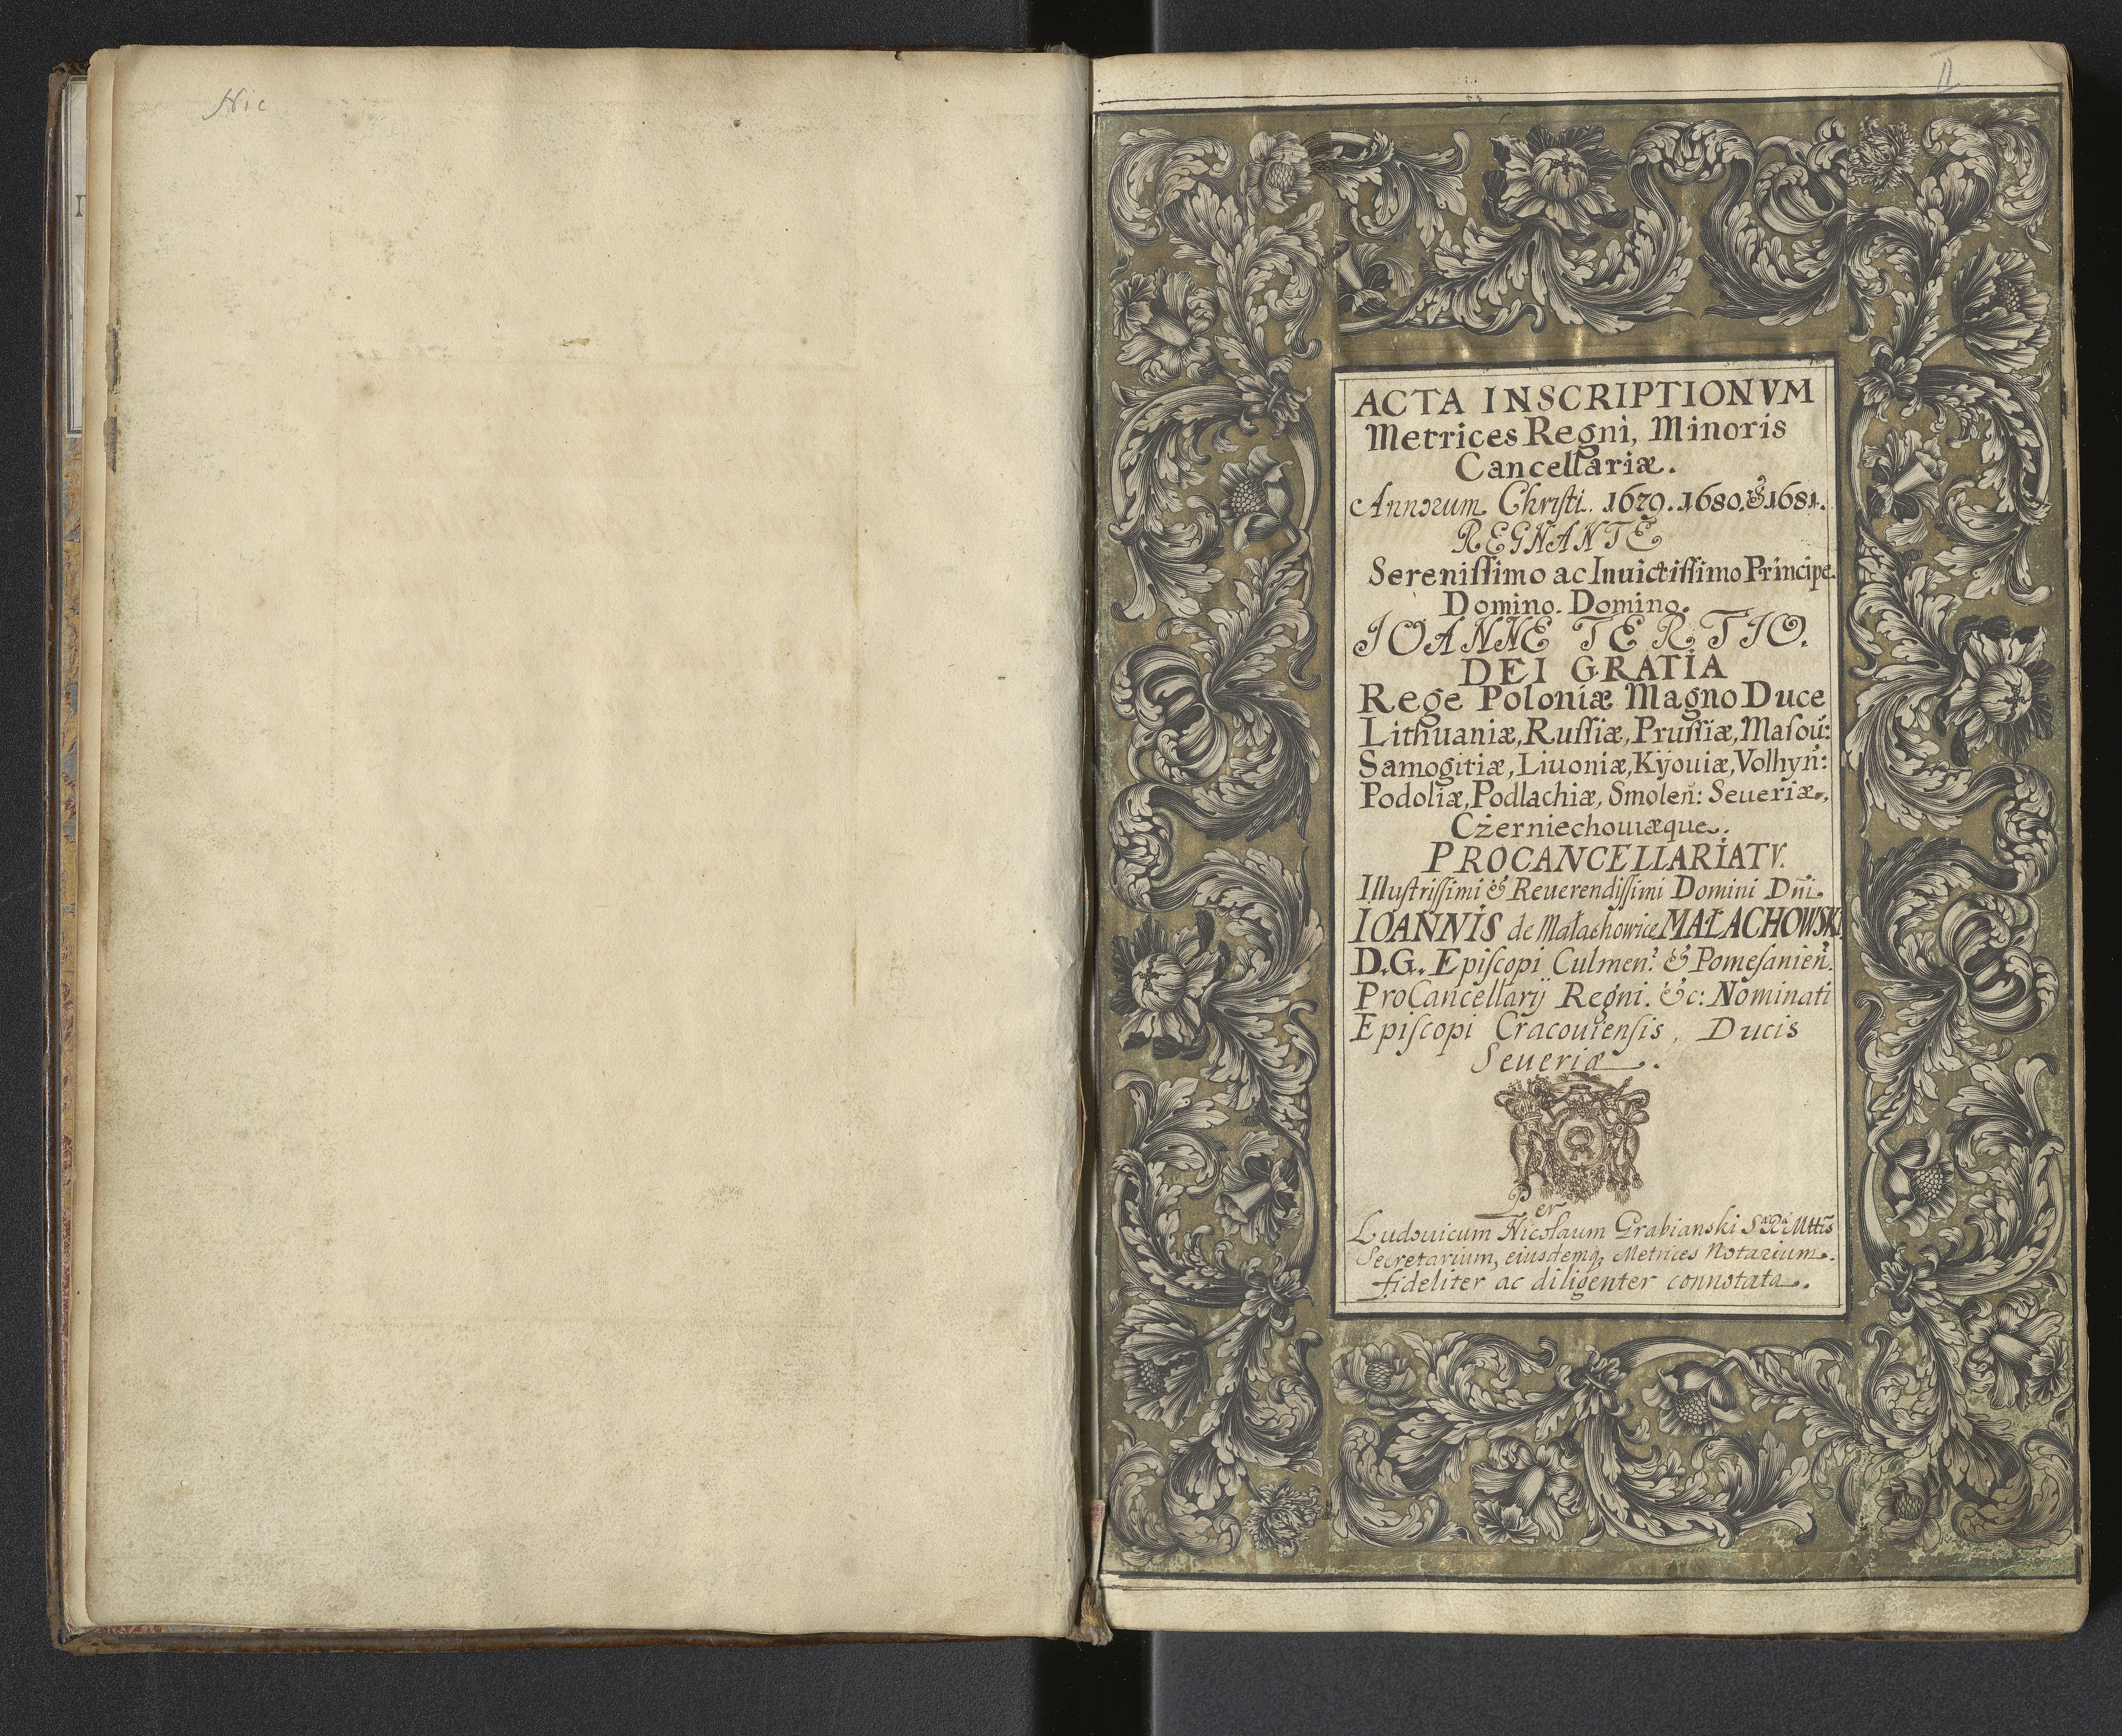 Nic
II
ACTA INSCRIPTIONVM
Metrices Regni, Minoris
Cancellariæ.
Annorum Christi. 1679. 1680. & 1681.
REGNANTE
Sereniſſimo ac Inuictiſſimo Principe.
Domino. Domino.
IOANNE TERTIO.
DEI GRATIA
Rege Poloniæ Magno Duce
Lithuaniæ, Ruſſiæ, Pruſſiæ, Maſoũ:
Samogitiæ, Liuoniæ, Kÿouiæ, Volhyñ:
Podoliæ, Podlachiæ, Smoleñ: Seueriæ.,
Cżerniechouiæque.
PROCANCELLARIATV.
Illuſtriſſimi & Reuerendiſſimi Domini Dñi.
IOANNIS de Małachowice MAŁACHOWSKI
D.G. Epiſcopi Culmen: & Pomeſanień.
ProCancellarij Regni. &c: Nominati
Epiſcopi Cracouienſis, Ducis
Seueriæ.
Per
Ludouicum Nicolaum Grabianski Sæ Ræ Mttis
Secretarium, eiusdemq, Metrices Notarium.
fideliter ac diligenter connotata.